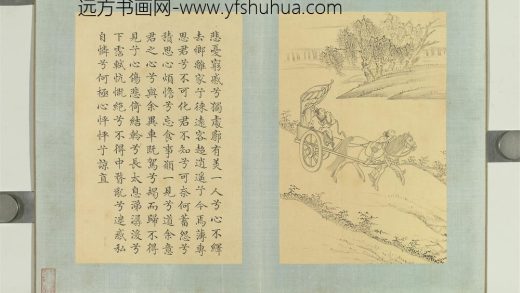 远方书画网-www.yfshuhua.com
悲憂窮慼兮獨處廓有美一人兮心不繹
去鄉離家兮徠遠客超逍遙兮今焉薄專
思君兮不可化君不知兮可奈何蓄怨兮
積思心煩憺兮忘食事願一見兮道余意
君之心兮與余異車既駕兮朅而歸不得
見兮心傷悲倚結軨兮長太息涕潺湲兮
下霑軾忼慨絕兮不得中瞀亂兮迷惑私
自憐兮何極心怦怦兮諒直